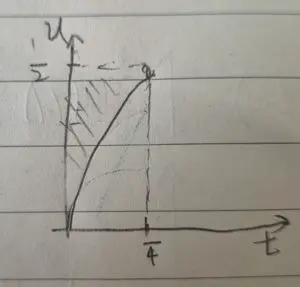 u
1/2
1/4
t